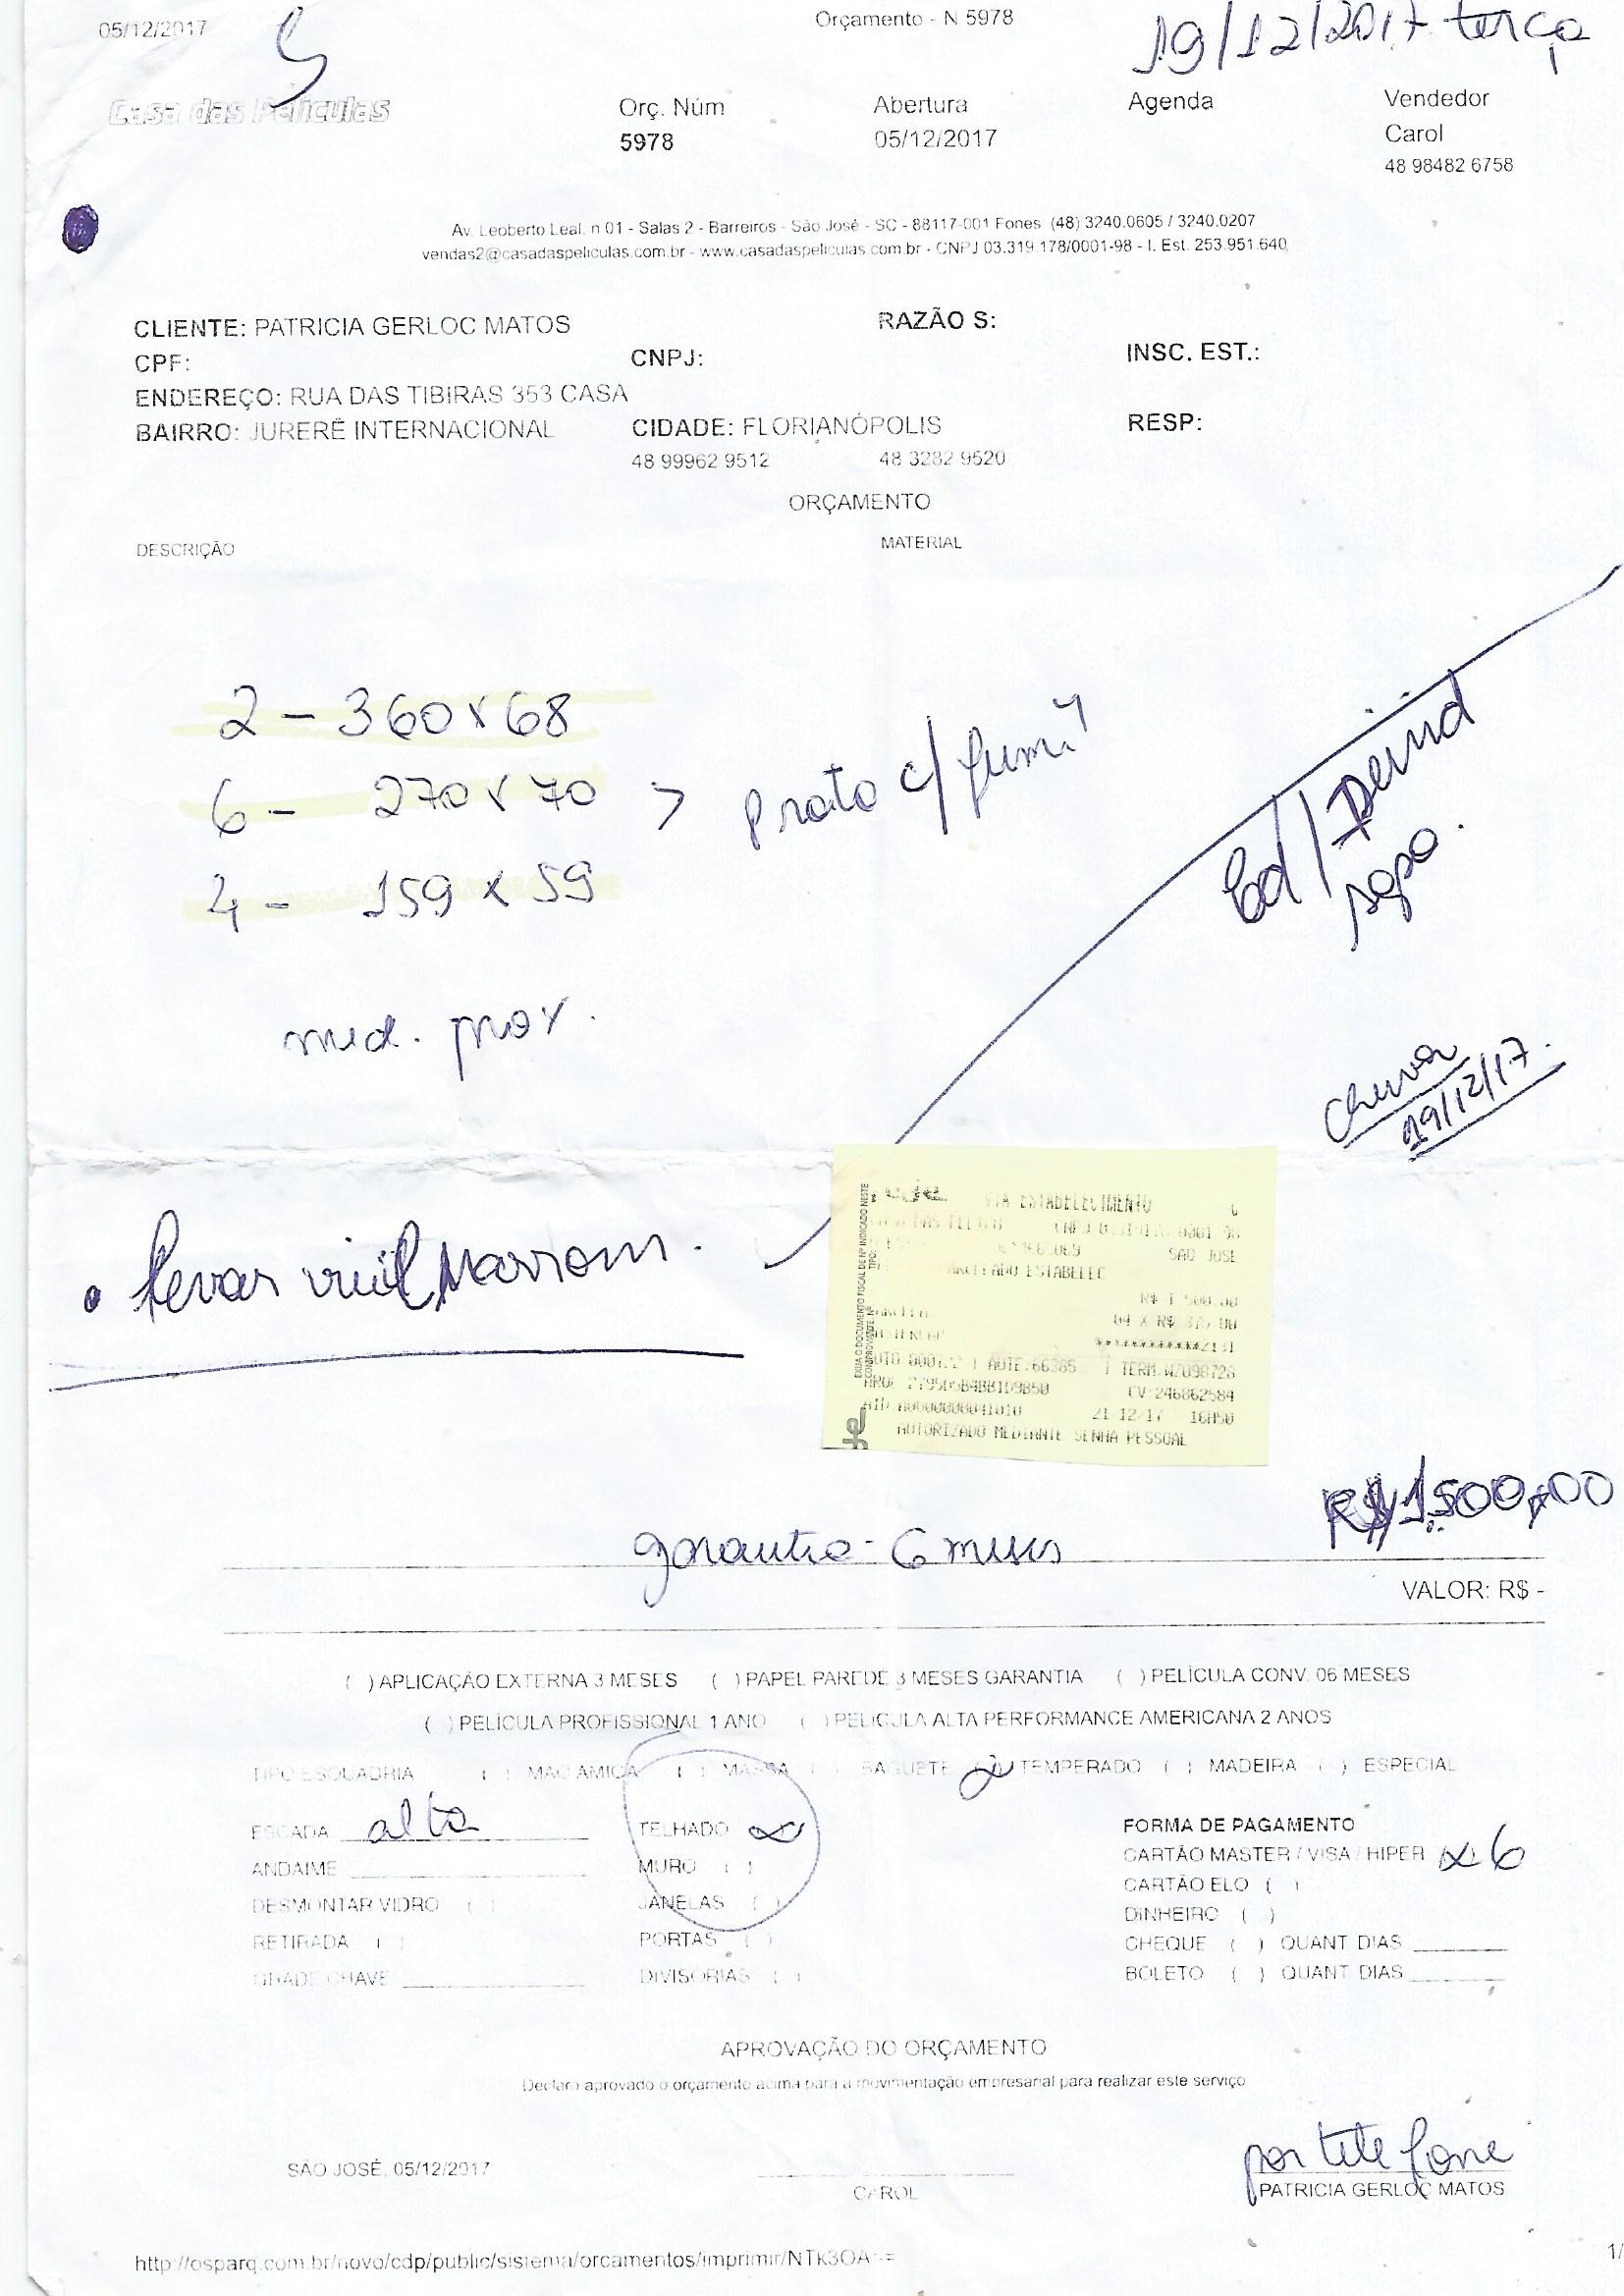 05/12/2017
Orçamento - N 5978
19/12/2017 terça
Casa das Películas
Orç. Núm
Abertura
Agenda
Vendedor
5978
05/12/2017
Carol
48 98482 6758
Av. Leoberto Leal, n 01 - Salas 2 - Barreiros - São José - SC - 88117-001 Fones (48) 3240.0605 / 3240.0207
vendas2@casadaspeliculas.com.br - www.casadaspeliculas.com.br - CNPJ 03.319.178/0001-98 - I. Est. 253.951.640
CLIENTE: PATRICIA GERLOC MATOS
RAZÃO S:
CPF:
CNPJ:
INSC. EST.:
ENDEREÇO: RUA DAS TIBIRAS 353 CASA
BAIRRO: JURERÊ INTERNACIONAL
CIDADE: FLORIANÓPOLIS
RESP:
48 99962 9512
48 3282 9520
ORÇAMENTO
DESCRIÇÃO
MATERIAL
2 - 360 x 68
6 - 270 x 70 > Prata c/ fumê
4 - 159 x 59
med. prox.
chuva
19/12/17.
• levar vinil Marrom.
VIA ESTABELECIMENTO
SAO JOSE
R$ 1.500,00
04 X R$ 375,00
************2131
AUTE.66385
TERM.WZ098728
CV:246862584
21 12/17 16H50
AUTORIZADO MEDIANTE SENHA PESSOAL
R$ 1.500,00
garantia - 6 meses
VALOR: R$ -
( ) APLICAÇÃO EXTERNA 3 MESES ( ) PAPEL PAREDE 3 MESES GARANTIA ( ) PELÍCULA CONV. 06 MESES
( ) PELÍCULA PROFISSIONAL 1 ANO ( ) PELÍCULA ALTA PERFORMANCE AMERICANA 2 ANOS
TIPO ESQUADRIA ( ) MAÇAMICA ( ) MASSA ( ) BAGUETE (x) TEMPERADO ( ) MADEIRA ( ) ESPECIAL
ESCADA alta
TELHADO (x)
FORMA DE PAGAMENTO
ANDAIME
MURO ( )
CARTÃO MASTER / VISA / HIPER (x) 6
DESMONTAR VIDRO ( )
JANELAS ( )
CARTÃO ELO ( )
DINHEIRO ( )
RETIRADA ( )
PORTAS ( )
CHEQUE ( ) QUANT DIAS
GRADE CHAVE
DIVISÓRIAS ( )
BOLETO ( ) QUANT DIAS
APROVAÇÃO DO ORÇAMENTO
Declaro aprovado o orçamento acima para a movimentação empresarial para realizar este serviço
por telefone
SÃO JOSÉ, 05/12/2017
CAROL
PATRICIA GERLOC MATOS
http://osparq.com.br/novo/cdp/public/sistema/orcamentos/imprimir/NTk3OA==
1/